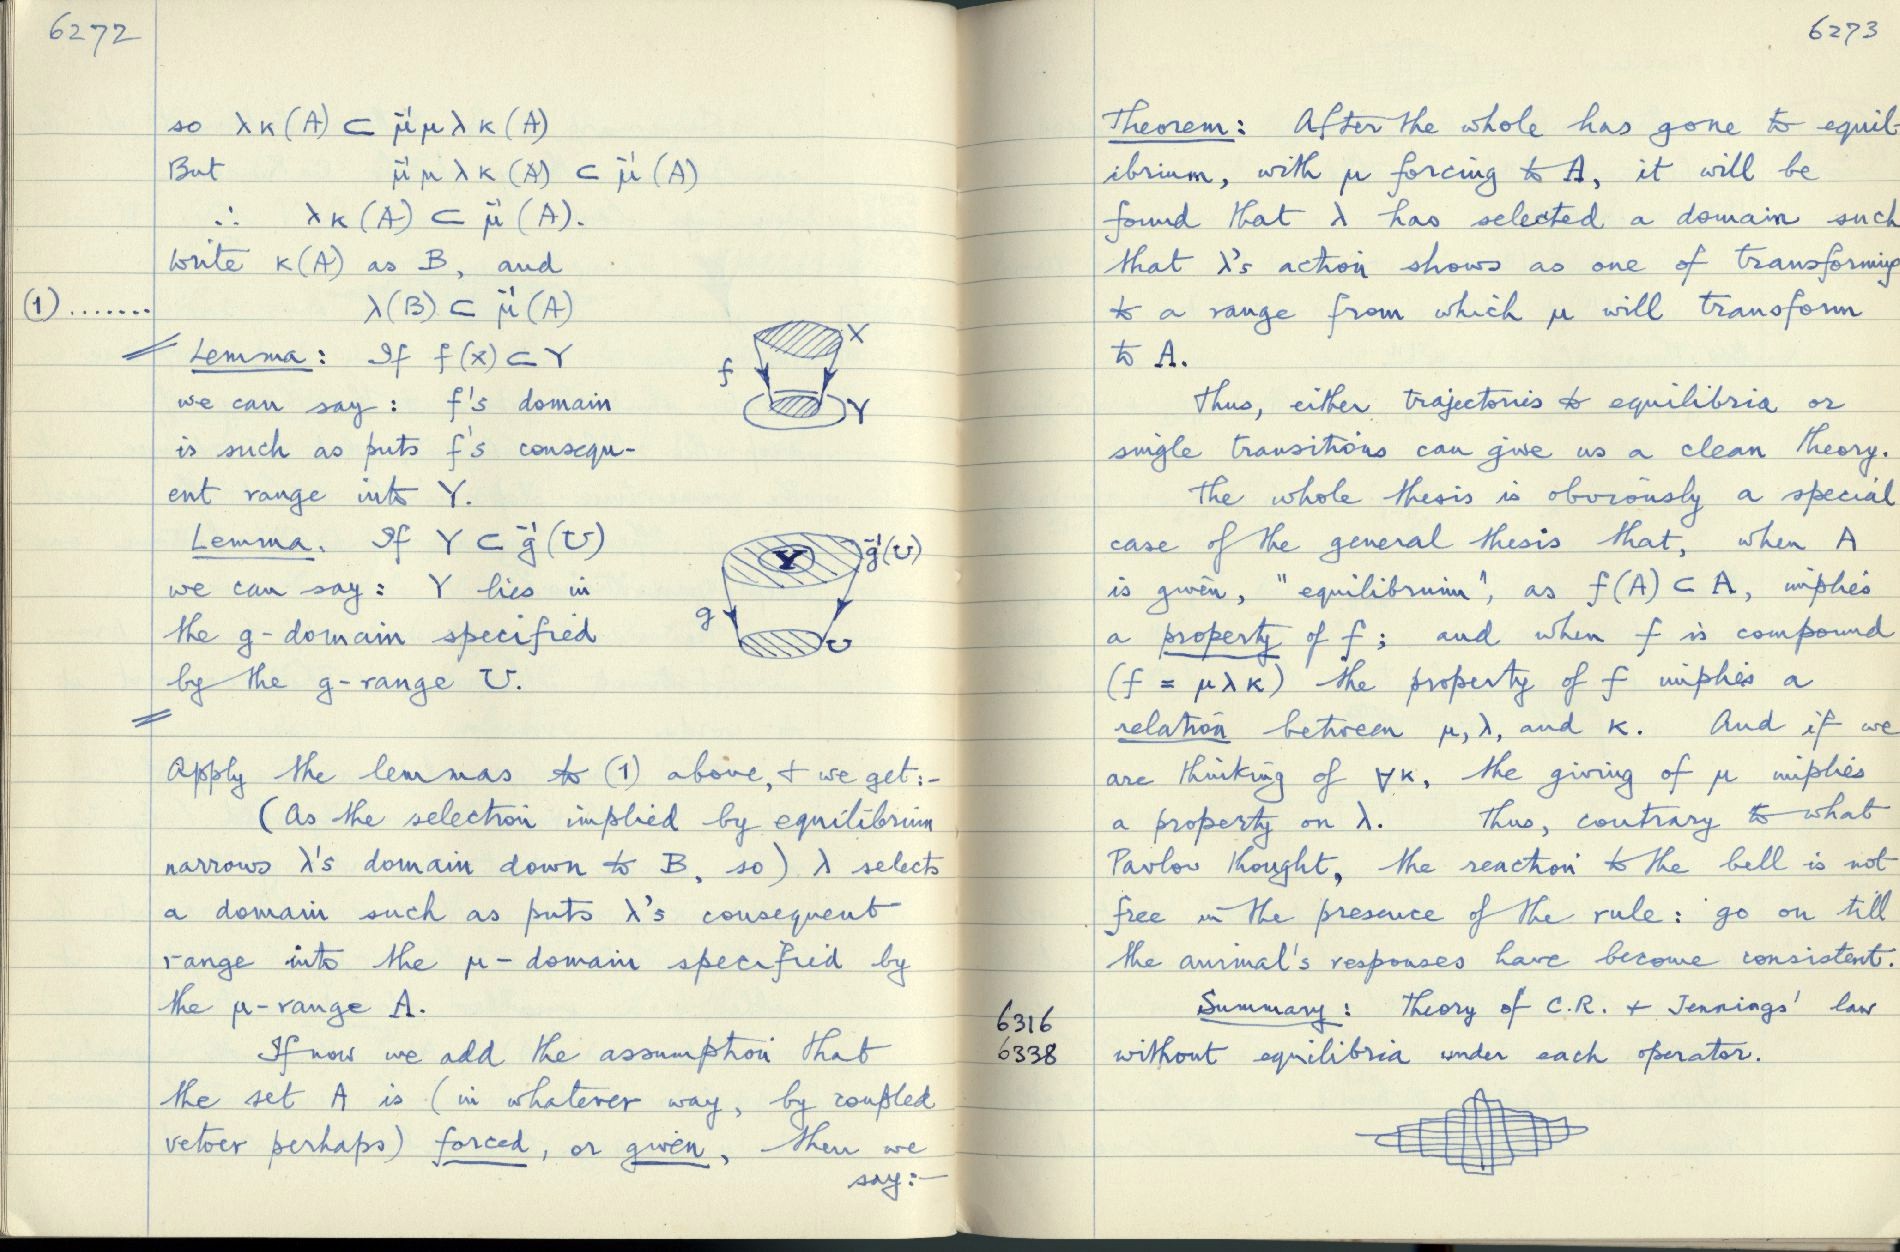 6272
so λκ(A) ⊂ μ⁻¹μλκ(A)
But μ⁻¹μλκ(A) ⊂ μ⁻¹(A)
∴ λκ(A) ⊂ μ⁻¹(A).
Write κ(A) as B, and
(1) ....... λ(B) ⊂ μ⁻¹(A)
Lemma: If f(x) ⊂ Y
we can say: f's domain
is such as puts f's consequ-
ent range into Y.
X
f
Y
Lemma. If Y ⊂ g⁻¹(U)
we can say: Y lies in
the g-domain specified
by the g-range U.
Y
g⁻¹(U)
g
U
Apply the lemmas to (1) above, & we get:-
(As the selection implied by equilibrium
narrows λ's domain down to B, so) λ selects
a domain such as puts λ's consequent
range into the μ-domain specified by
the μ-range A.
If now we add the assumption that
the set A is (in whatever way, by coupled
vetoer perhaps) forced, or given, then we
say:-
6273
Theorem: After the whole has gone to equil-
ibrium, with μ forcing to A, it will be
found that λ has selected a domain such
that λ's action shows as one of transforming
to a range from which μ will transform
to A.
Thus, either trajectories to equilibria or
single transitions can give us a clean theory.
The whole thesis is obviously a special
case of the general thesis that, when A
is given, "equilibrium", as f(A) ⊂ A, implies
a property of f; and when f is compound
(f = μλκ) the property of f implies a
relation between μ, λ, and κ. And if we
are thinking of ∀κ, the giving of μ implies
a property on λ. Thus, contrary to what
Pavlov thought, the reaction to the bell is not
free in the presence of the rule: go on till
the animal's responses have become consistent.
6316 Summary: Theory of C.R. & Jennings' law
6338 without equilibria under each operator.